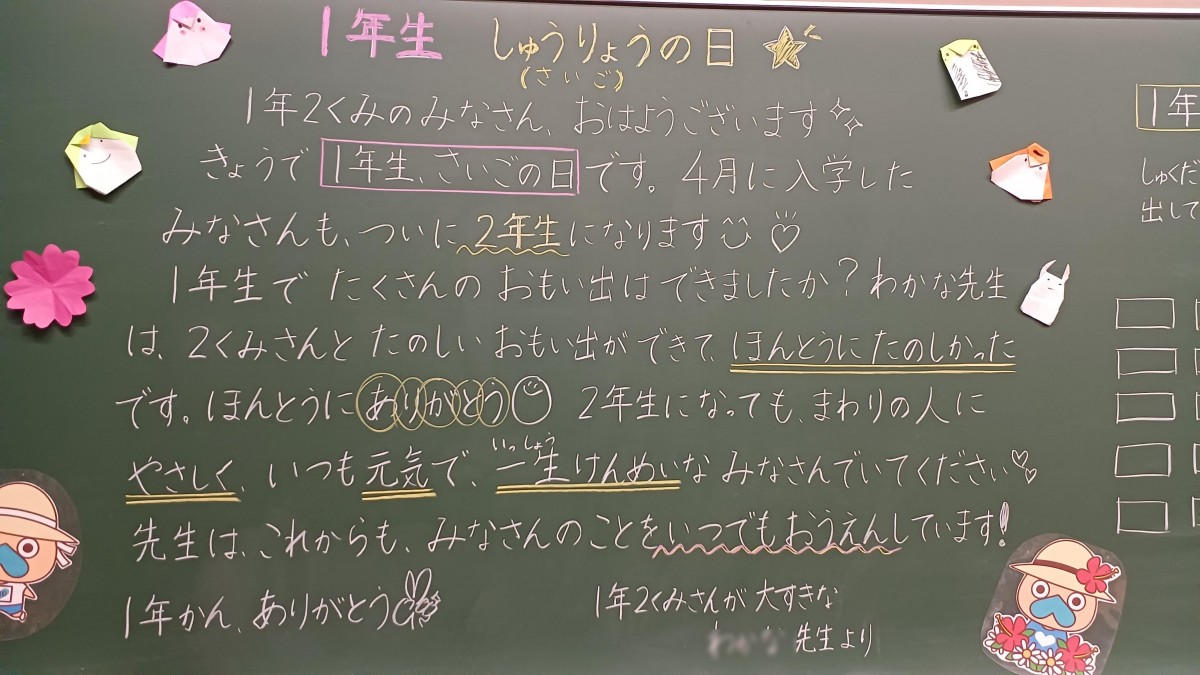 1年生 しゅうりょうの日
(さいご)
1年2くみのみなさん、おはようございます
きょうで 1年生、さいごの日です。4月に入学した
みなさんも、ついに2年生になります
1年生で たくさんの おもい出はできましたか?わかな先生
は、2くみさんと たのしい おもい出ができて、ほんとうにたのしかった
です。ほんとうにありがとう 2年生になっても、まわりの人に
いっしょう
やさしく、いつも元気で、一生けんめいな みなさんでいてください
先生は、これからも、みなさんのことをいつでもおうえんしています!
1年かん、ありがとう
1年2くみさんが 大すきな
わかな 先生より
1年
しゅくだ
出して